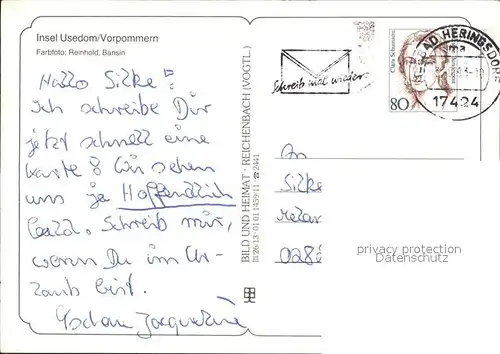 Insel Usedom/Vorpommern
Farbfoto: Reinhold, Bansin
Hallo Silke!
Ich schreibe Dir
jetzt schnell eine
Karte! Wir sehen
uns ja Hoffendlich
bald. Schreib mir,
wenn Du im Ur-
laub bist.
Jacqueline
BILD UND HEIMAT · REICHENBACH (VOGTL.)
III/26/13 · 01 01 1459/11 · ☎ 2441
Schreib mal wieder
Clara Schumann
80
BAD HERINGSDORF
17424
An
Silke
028
privacy protection
Datenschutz